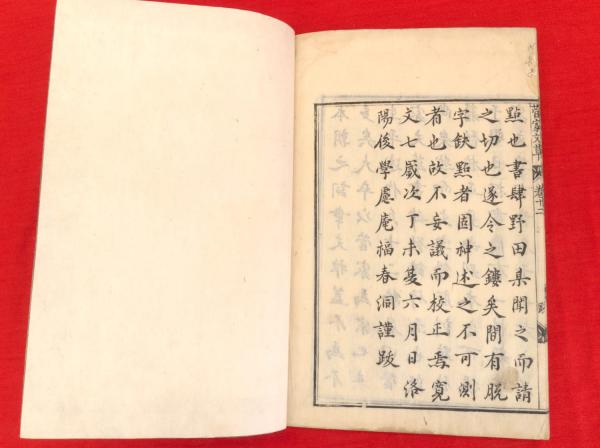 點也書肆野田某聞之而請
之切也遂令之鏤矣間有脱
字缺點者固神述之不可測
者也故不妄議而校正焉寛
文七歲次丁未夷六月日洛
陽後學慮庵福春洞謹跋
菅家文草 卷十二
跋